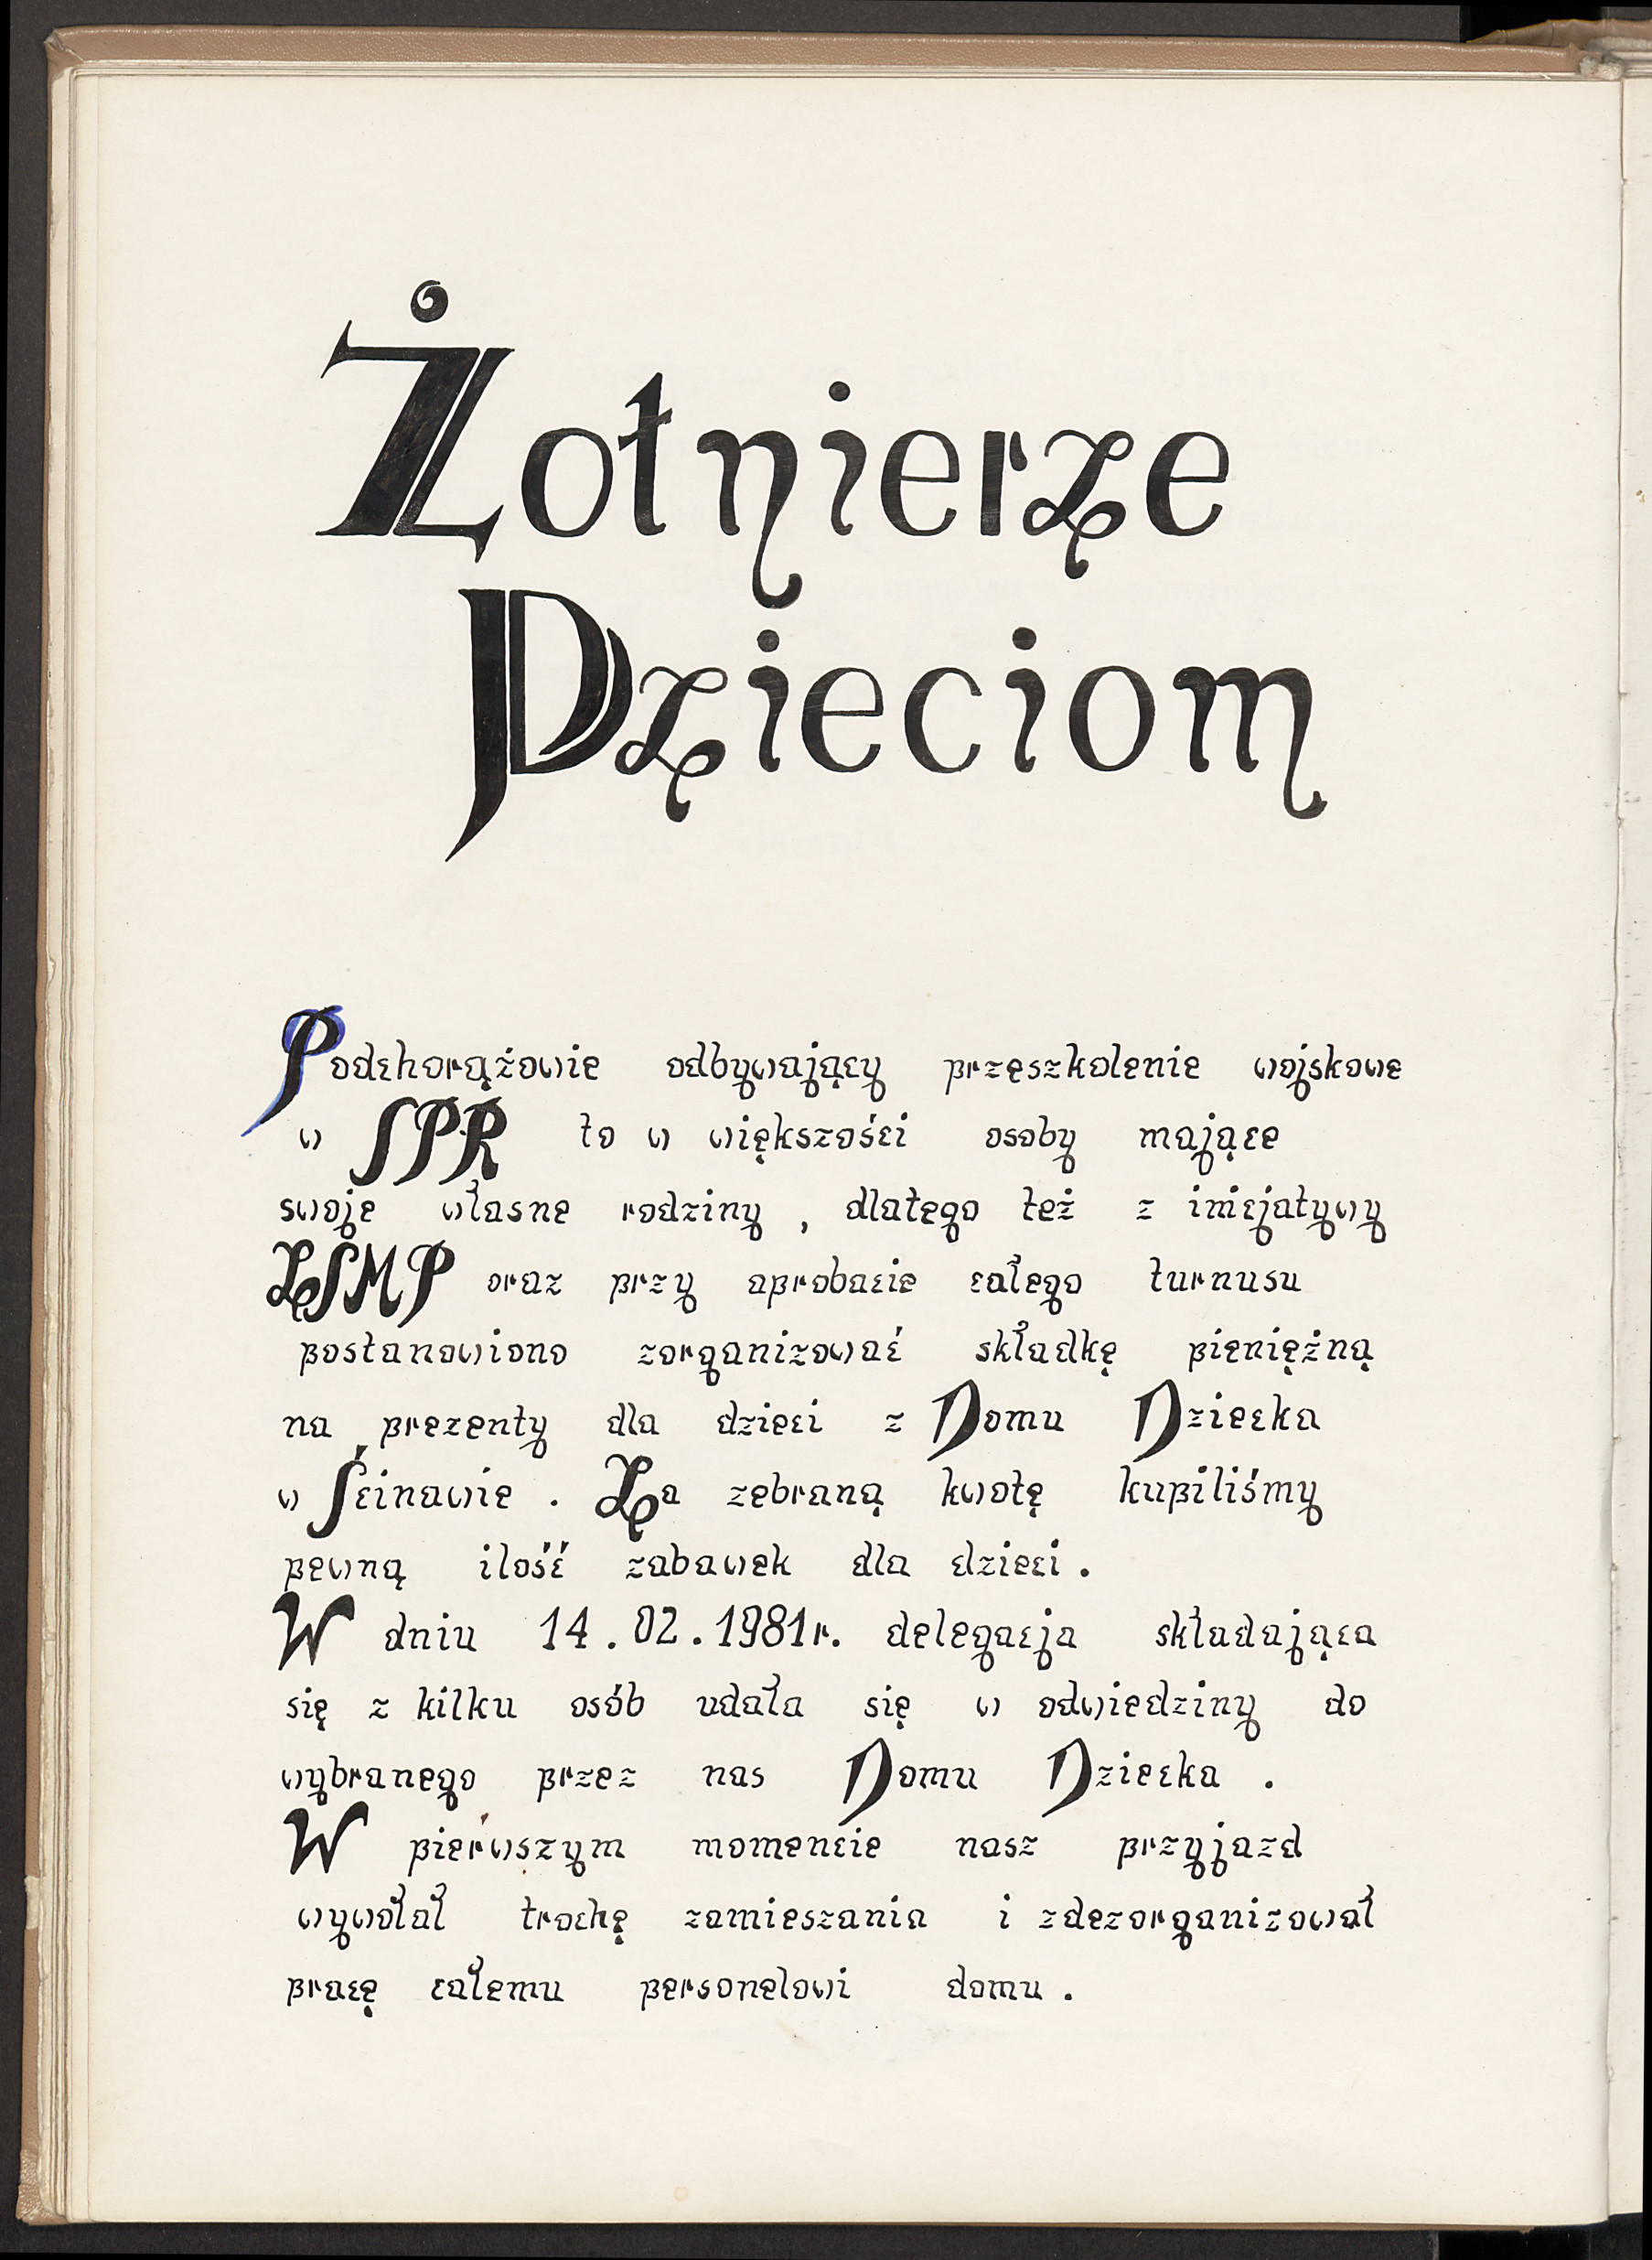 Żołnierze
Dzieciom
Podchorążowie odbywający przeszkolenie wojskowe
w SPR to w większości osoby mające
swoje własne rodziny , dlatego też z inicjatywy
ZSMP oraz przy aprobacie całego turnusu
postanowiono zorganizować składkę pieniężną
na prezenty dla dzieci z Domu Dziecka
w Ścinawie . Za zebraną kwotę kupiliśmy
pewną ilość zabawek dla dzieci .
W dniu 14 . 02 . 1981 r. delegacja składająca
się z kilku osób udała się w odwiedziny do
wybranego przez nas Domu Dziecka .
W pierwszym momencie nasz przyjazd
wywołał trochę zamieszania i zdezorganizował
pracę całemu personelowi domu .